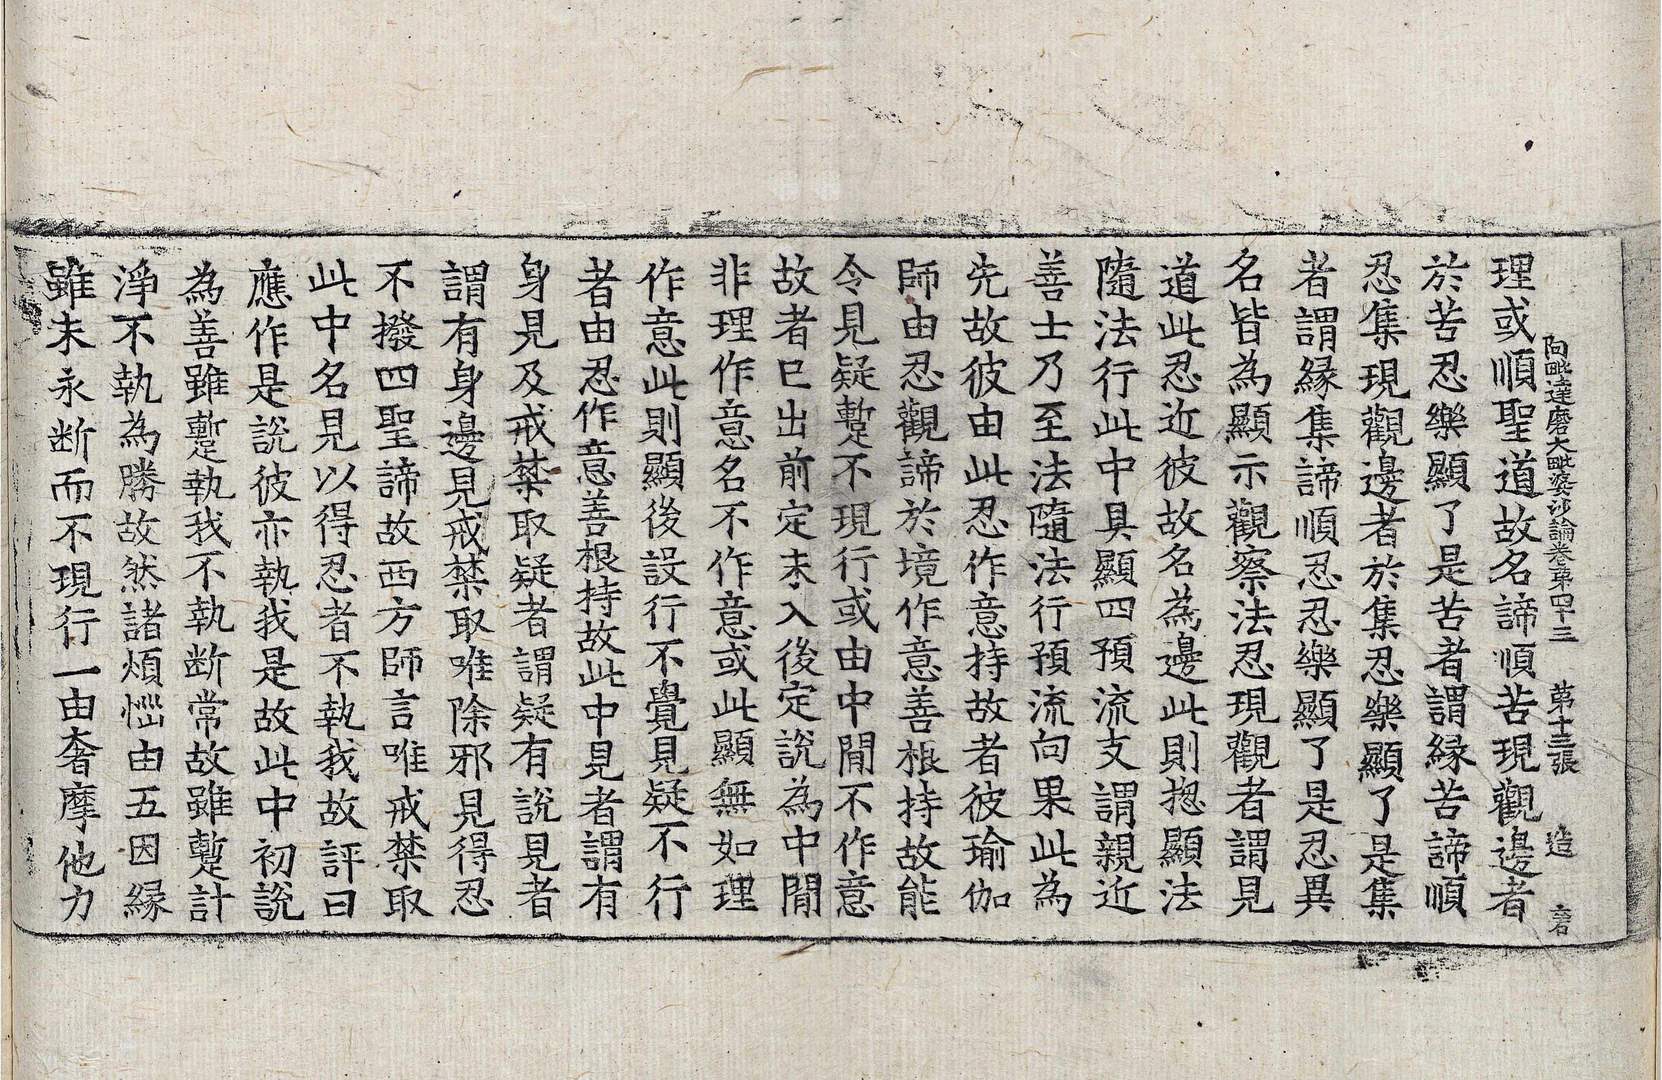 阿毗達磨大毗婆沙論卷第四十三 第十三張 造
理或順聖道故名諦順苦現觀邊者
於苦忍樂顯了是苦者謂緣苦諦順
忍集現觀邊者於集忍樂顯了是集
者謂緣集諦順忍忍樂顯了是忍異
名皆為顯示觀察法忍現觀者謂見
道此忍近彼故名為邊此則揔顯法
隨法行此中具顯四預流支謂親近
善士乃至法隨法行預流向果此為
先故彼由此忍作意持故者彼瑜伽
師由忍觀諦於境作意善根持故能
令見疑蹔不現行或由中閒不作意
故者已出前定未入後定說為中閒
非理作意名不作意或此顯無如理
作意此則顯後設行不覺見疑不行
者由忍作意善根持故此中見者謂有
身見及戒禁取疑者謂疑有說見者
謂有身邊見戒禁取唯除邪見得忍
不撥四聖諦故西方師言唯戒禁取
此中名見以得忍者不執我故評曰
應作是說彼亦執我是故此中初說
為善雖蹔執我不執断常故雖蹔計
淨不執為勝故然諸煩惱由五因緣
雖未永断而不現行一由奢摩他力